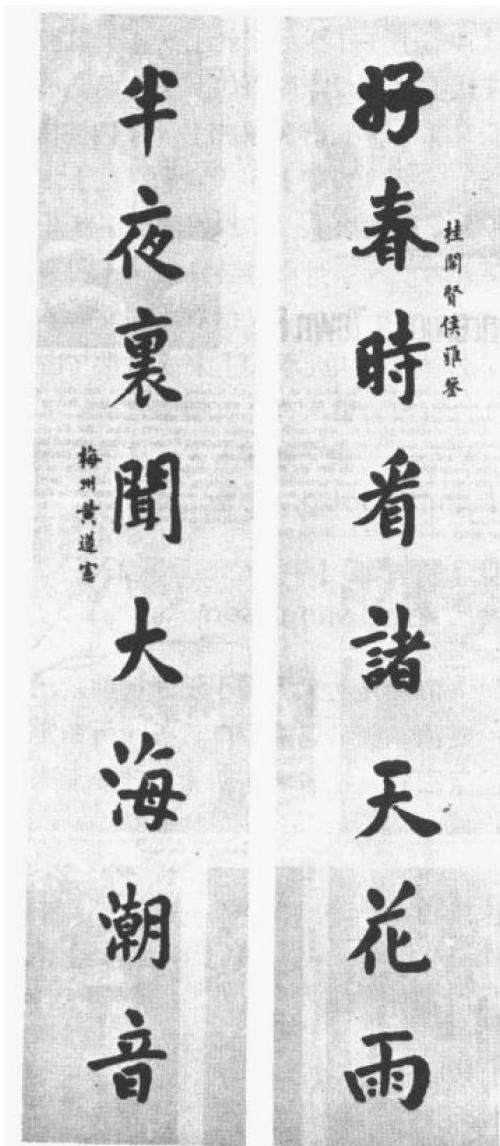 好春時看諸天花雨
桂閣賢侯雅鉴
半夜裏聞大海潮音
梅州黄遵憲